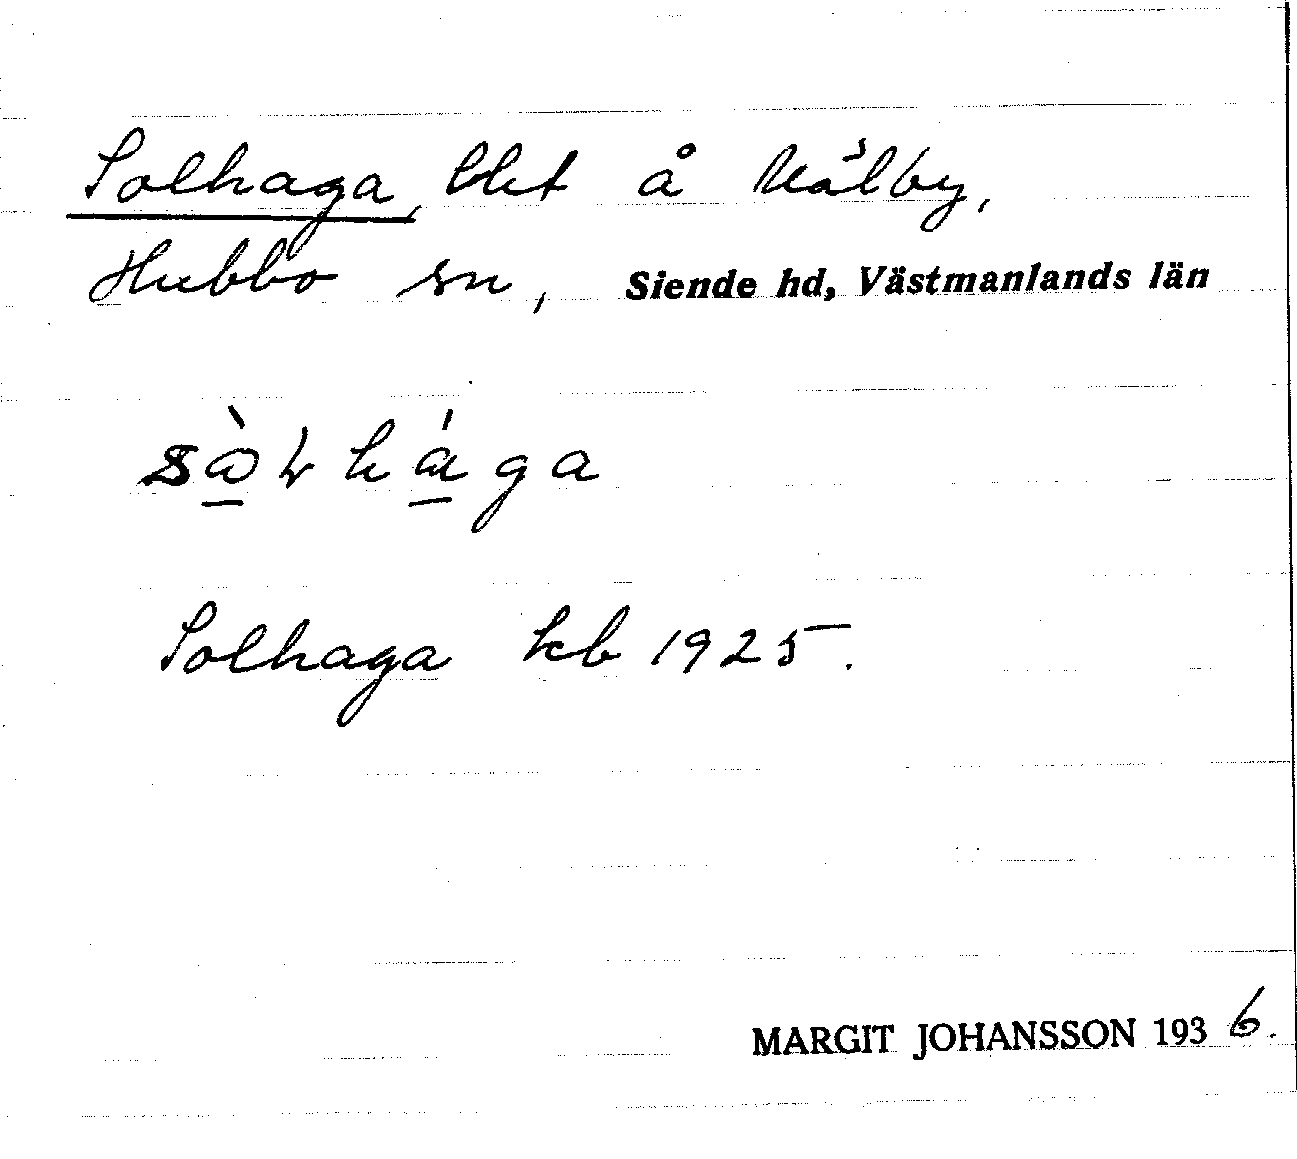 Solhaga, lht å Mälby,
Hubbo sn, Siende hd, Västmanlands län
sὼ̱ɽhɑ̱́ga
Solhaga kb 1925.
MARGIT JOHANSSON 1936.